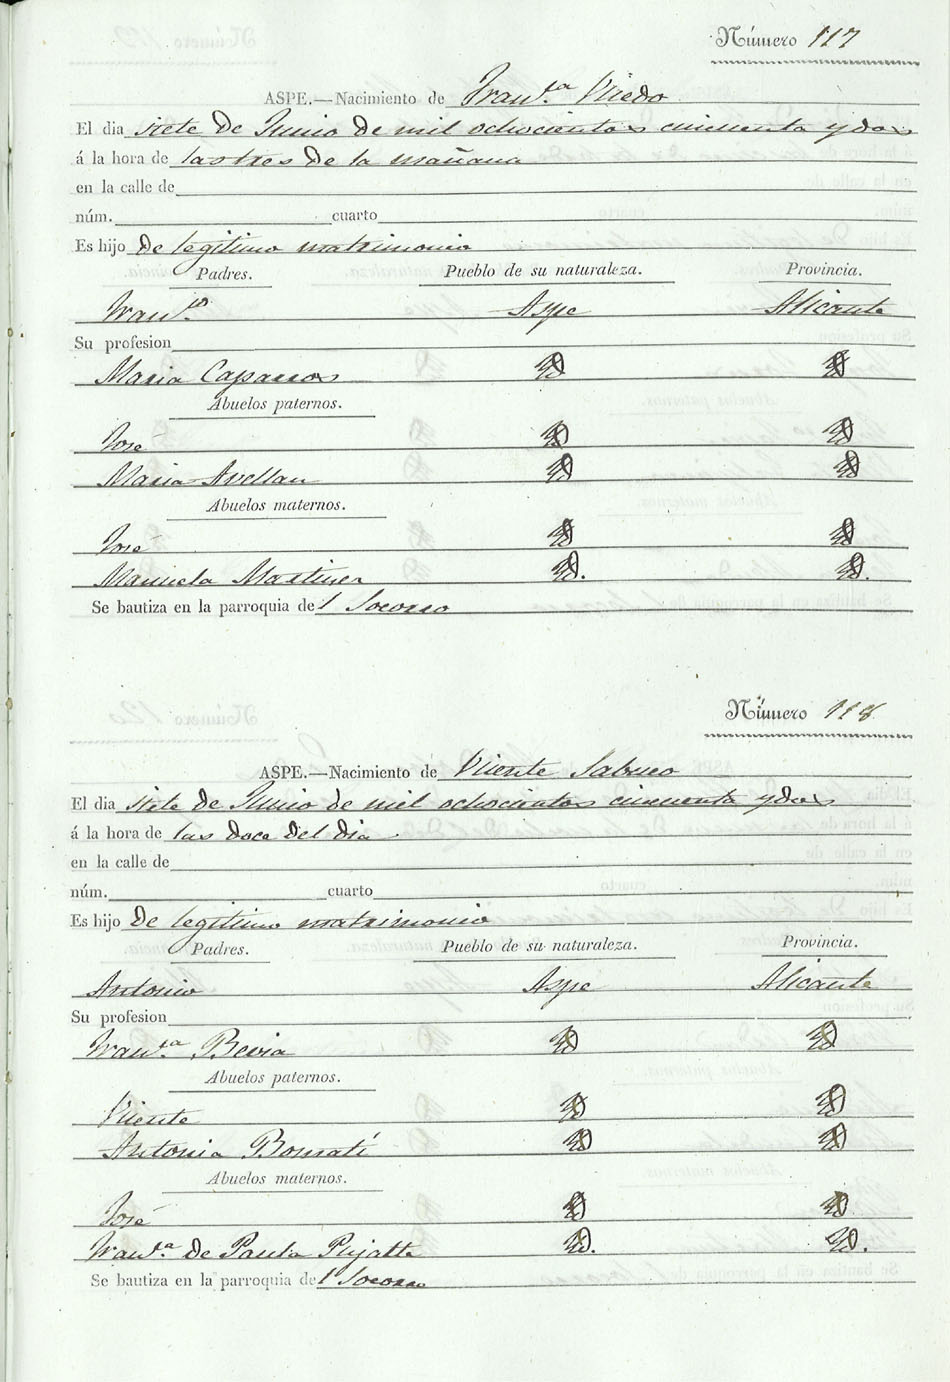 Número 117
ASPE.—Nacimiento de Fran.ca
El dia siete de Junio de mil ochocientos cincuenta y dos
á la hora de las tres de la mañana
en la calle de
núm. cuarto
Es hijo de legitimo matrimonio
Padres. Pueblo de su naturaleza. Provincia.
Fran.co Aspe Alicante
Su profesion
Maria Caparros Yd Yd
Abuelos paternos.
José Yd Yd
Maria Avellan Yd Yd
Abuelos maternos.
José Yd Yd
Manuela Martinez Yd. Yd.
Se bautiza en la parroquia del Socorro
Número 118
ASPE.—Nacimiento de Vicente Sabuco
El dia siete de Junio de mil ochocientos cincuenta y dos
á la hora de las doce del dia
en la calle de
núm. cuarto
Es hijo de legitimo matrimonio
Padres. Pueblo de su naturaleza. Provincia.
Antonio Aspe Alicante
Su profesion
Fran.ca Yd Yd
Abuelos paternos.
Vicente Yd Yd
Antonia Bonmatí Yd Yd
Abuelos maternos.
José Yd Yd
Fran.ca de Paula Pujalte Yd. Yd.
Se bautiza en la parroquia del Socorro